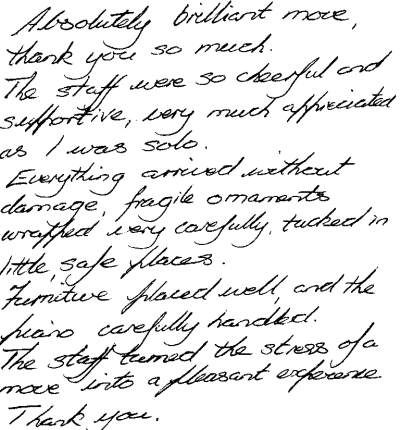 Absolutely brilliant move,
thank you so much.
The staff were so cheerful and
supportive, very much appreciated
as I was solo.
Everything arrived without
damage, fragile ornaments
wrapped very carefully, tucked in
little, safe places.
Furniture placed well, and the
piano carefully handled.
The staff turned the stress of a
move into a pleasant experience
Thank you.